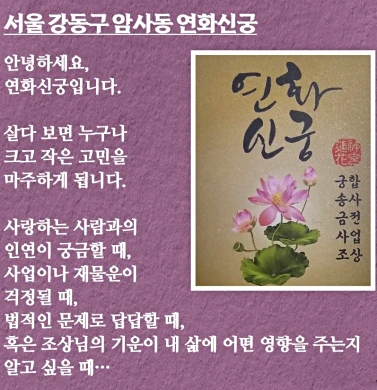 서울 강동구 암사동 연화신궁
안녕하세요,
연화신궁입니다.
살다 보면 누구나
크고 작은 고민을
마주하게 됩니다.
사랑하는 사람과의
인연이 궁금할 때,
사업이나 재물운이
걱정될 때,
법적인 문제로 답답할 때,
혹은 조상님의 기운이 내 삶에 어떤 영향을 주는지
알고 싶을 때…
연화
신궁
궁합
송사
금전
사업
조상